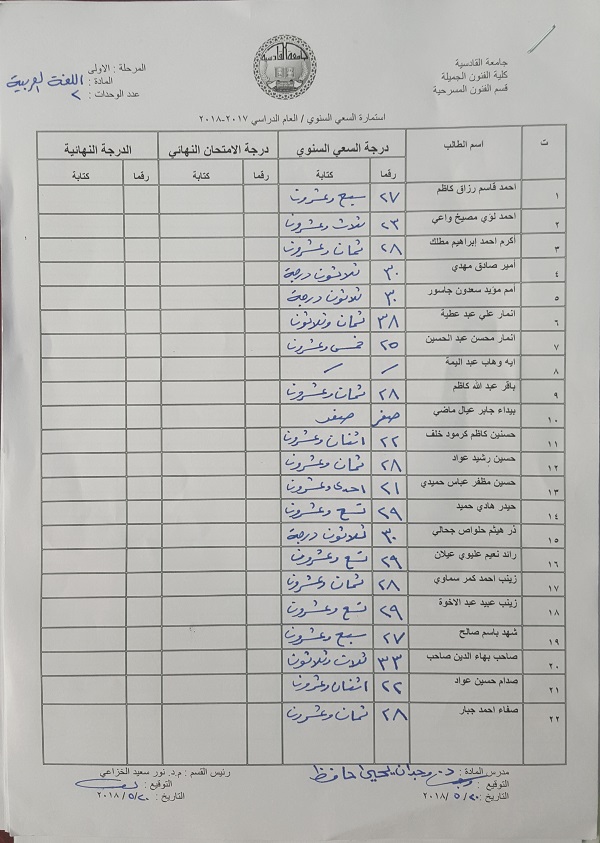 جامعة القادسية
كلية الفنون الجميلة
قسم الفنون المسرحية
جامعة القادسية
المرحلة : الاولى
المادة : اللغة العربية
عدد الوحدات : ٢
استمارة السعي السنوي / العام الدراسي ٢٠١٧-٢٠١٨
ت اسم الطالب درجة السعي السنوي درجة الامتحان النهائي الدرجة النهائية
رقما كتابة رقما كتابة رقما كتابة
١ احمد قاسم رزاق كاظم ٢٧ سبع وعشرون
٢ احمد لؤي مصيخ واعي ٢٣ ثلاث وعشرون
٣ أكرم احمد إبراهيم مطلك ٢٨ ثمان وعشرون
٤ أمير صادق مهدي ٣٠ ثلاثون درجة
٥ امم مؤيد سعدون جاسور ٣٠ ثلاثون درجة
٦ انمار علي عبد عطية ٣٨ ثمان وثلاثون
٧ انمار محسن عبد الحسين ٢٥ خمس وعشرون
٨ ايه وهاب عبد اليمة / /
٩ باقر عبد الله كاظم ٢٨ ثمان وعشرون
١٠ بيداء جابر عيال ماضي صفر صفر
١١ حسنين كاظم كرمود خلف ٢٢ اثنان وعشرون
١٢ حسين رشيد عواد ٢٨ ثمان وعشرون
١٣ حسين مظفر عباس حميدي ٢١ احدى وعشرون
١٤ حيدر هادي حميد ٢٩ تسع وعشرون
١٥ ذر هيثم حلواص جحالي ٣٠ ثلاثون درجة
١٦ رائد نعيم عليوي عيلان ٢٩ تسع وعشرون
١٧ زينب احمد كمر سماوي ٢٨ ثمان وعشرون
١٨ زينب عبيد عبد الاخوة ٢٩ تسع وعشرون
١٩ شهد باسم صالح ٢٧ سبع وعشرون
٢٠ صاحب بهاء الدين صاحب ٣٣ ثلاث وثلاثون
٢١ صدام حسين عواد ٢٢ اثنان وعشرون
٢٢ صفاء احمد جبار ٢٨ ثمان وعشرون
مدرس المادة : م.د. وجدان يحيى حافظ
التوقيع :
التاريخ : ٢٠١٨/٥/٢٠
رئيس القسم : م.د. نور سعيد الخزاعي
التوقيع :
التاريخ : ٢٠١٨/٥/٢٠